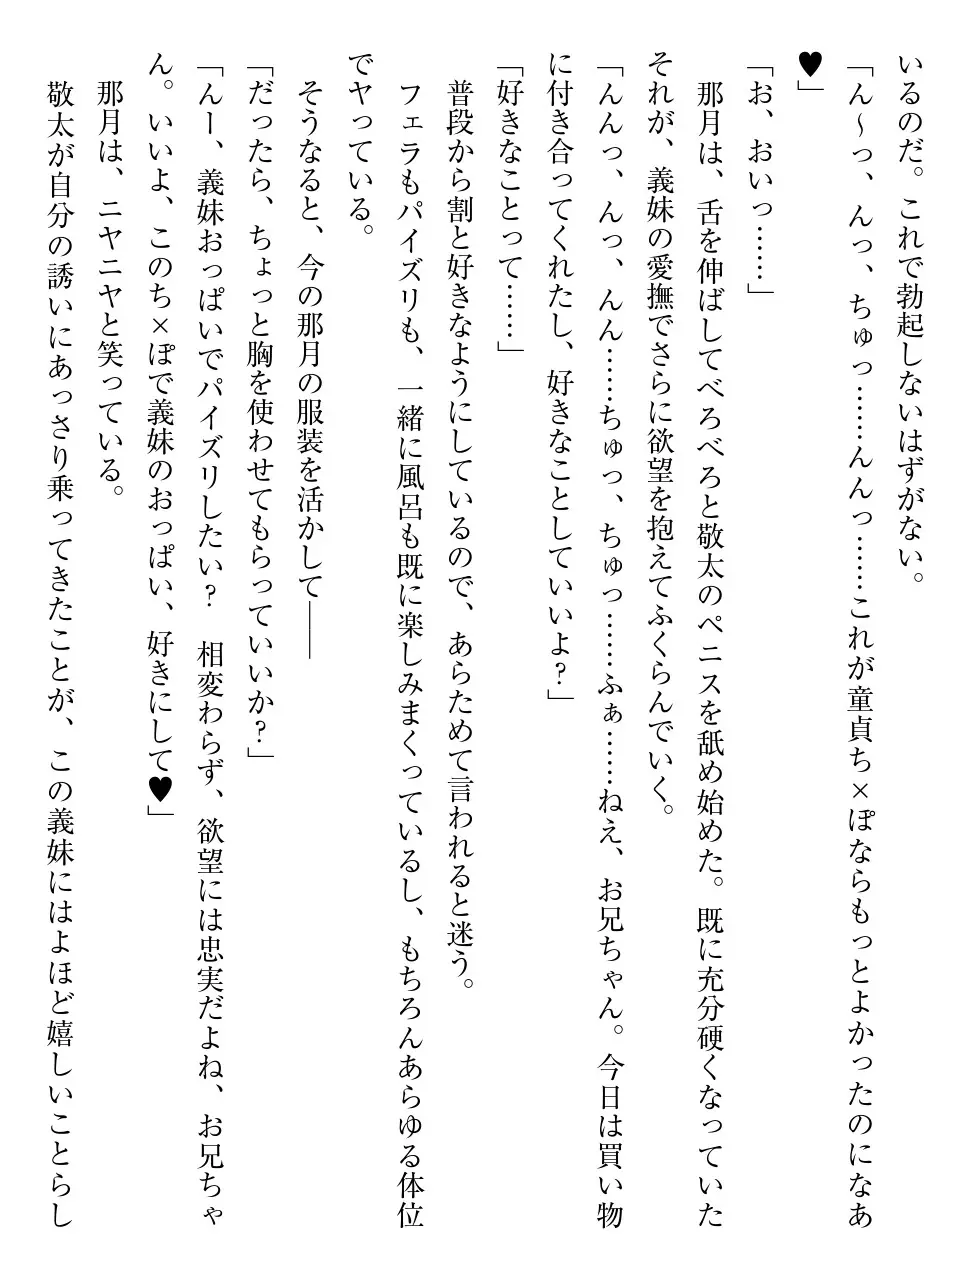 いるのだ。これで勃起しないはずがない。
「ん～っ、んっ、ちゅっ……んんっ……これが童貞ち×ぽならもっとよかったのになあ
♥」
「お、おいっ……」
　那月は、舌を伸ばしてべろべろと敬太のペニスを舐め始めた。既に充分硬くなっていた
それが、義妹の愛撫でさらに欲望を抱えてふくらんでいく。
「んんっ、んっ、んん……ちゅっ、ちゅっ……ふぁ……ねえ、お兄ちゃん。今日は買い物
に付き合ってくれたし、好きなことしていいよ？」
「好きなことって……」
　普段から割と好きなようにしているので、あらためて言われると迷う。
　フェラもパイズリも、一緒に風呂も既に楽しみまくっているし、もちろんあらゆる体位
でヤっている。
　そうなると、今の那月の服装を活かして――
「だったら、ちょっと胸を使わせてもらっていいか？」
「んー、義妹おっぱいでパイズリしたい？　相変わらず、欲望には忠実だよね、お兄ちゃ
ん。いいよ、このち×ぽで義妹のおっぱい、好きにして♥」
　那月は、ニヤニヤと笑っている。
　敬太が自分の誘いにあっさり乗ってきたことが、この義妹にはよほど嬉しいことらし